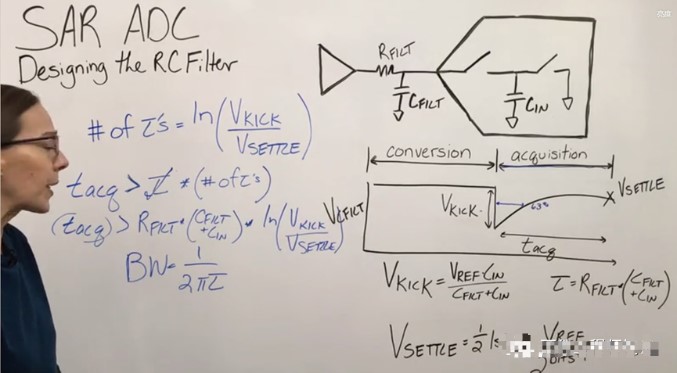 SAR ADC
Designing the RC Filter
# of τ's = ln(VKICK/VSETTLE)
tacq > τ * (# of τ's)
(tacq) > RFILT * (CFILT + CIN) * ln(VKICK/VSETTLE)
BW = 1/2πτ
RFILT
CFILT
CIN
conversion
acquisition
VCFILT
VKICK
63%
VSETTLE
tacq
VKICK = VREF·CIN/CFILT+CIN
τ = RFILT * (CFILT + CIN)
VSETTLE = 1/2 VREF
bits